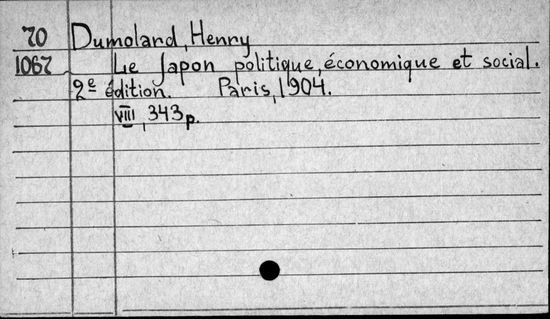 70 Dumolard, Henry
1067 Le Japon politique, économique et social.
2e édition. Paris, 1904.
VIII, 343 p.